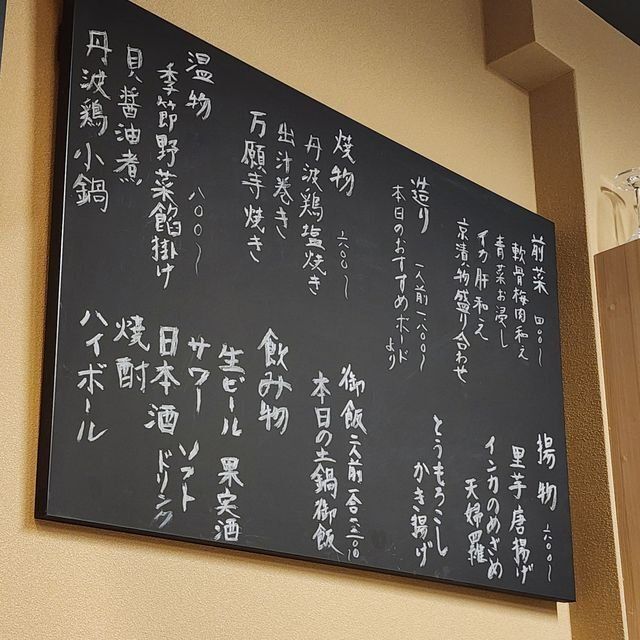 前菜 四〇〇〜
軟骨梅肉和え
青菜お浸し
イカ肝和え
京漬物盛り合わせ
造り 一人前一八〇〇〜
本日のおすすめボードより
焼物 六〇〇〜
丹波鶏塩焼き
出汁巻き
万願寺焼き
温物 八〇〇〜
季節野菜餡掛け
貝醤油煮
丹波鶏小鍋
揚物 六〇〇〜
里芋唐揚げ
インカのめざめ
天婦羅
とうもろこし
かき揚げ
御飯 二人前一合二三〇〇
本日の土鍋御飯
飲み物
生ビール 果実酒
サワー ソフト
日本酒 ドリンク
焼酎
ハイボール